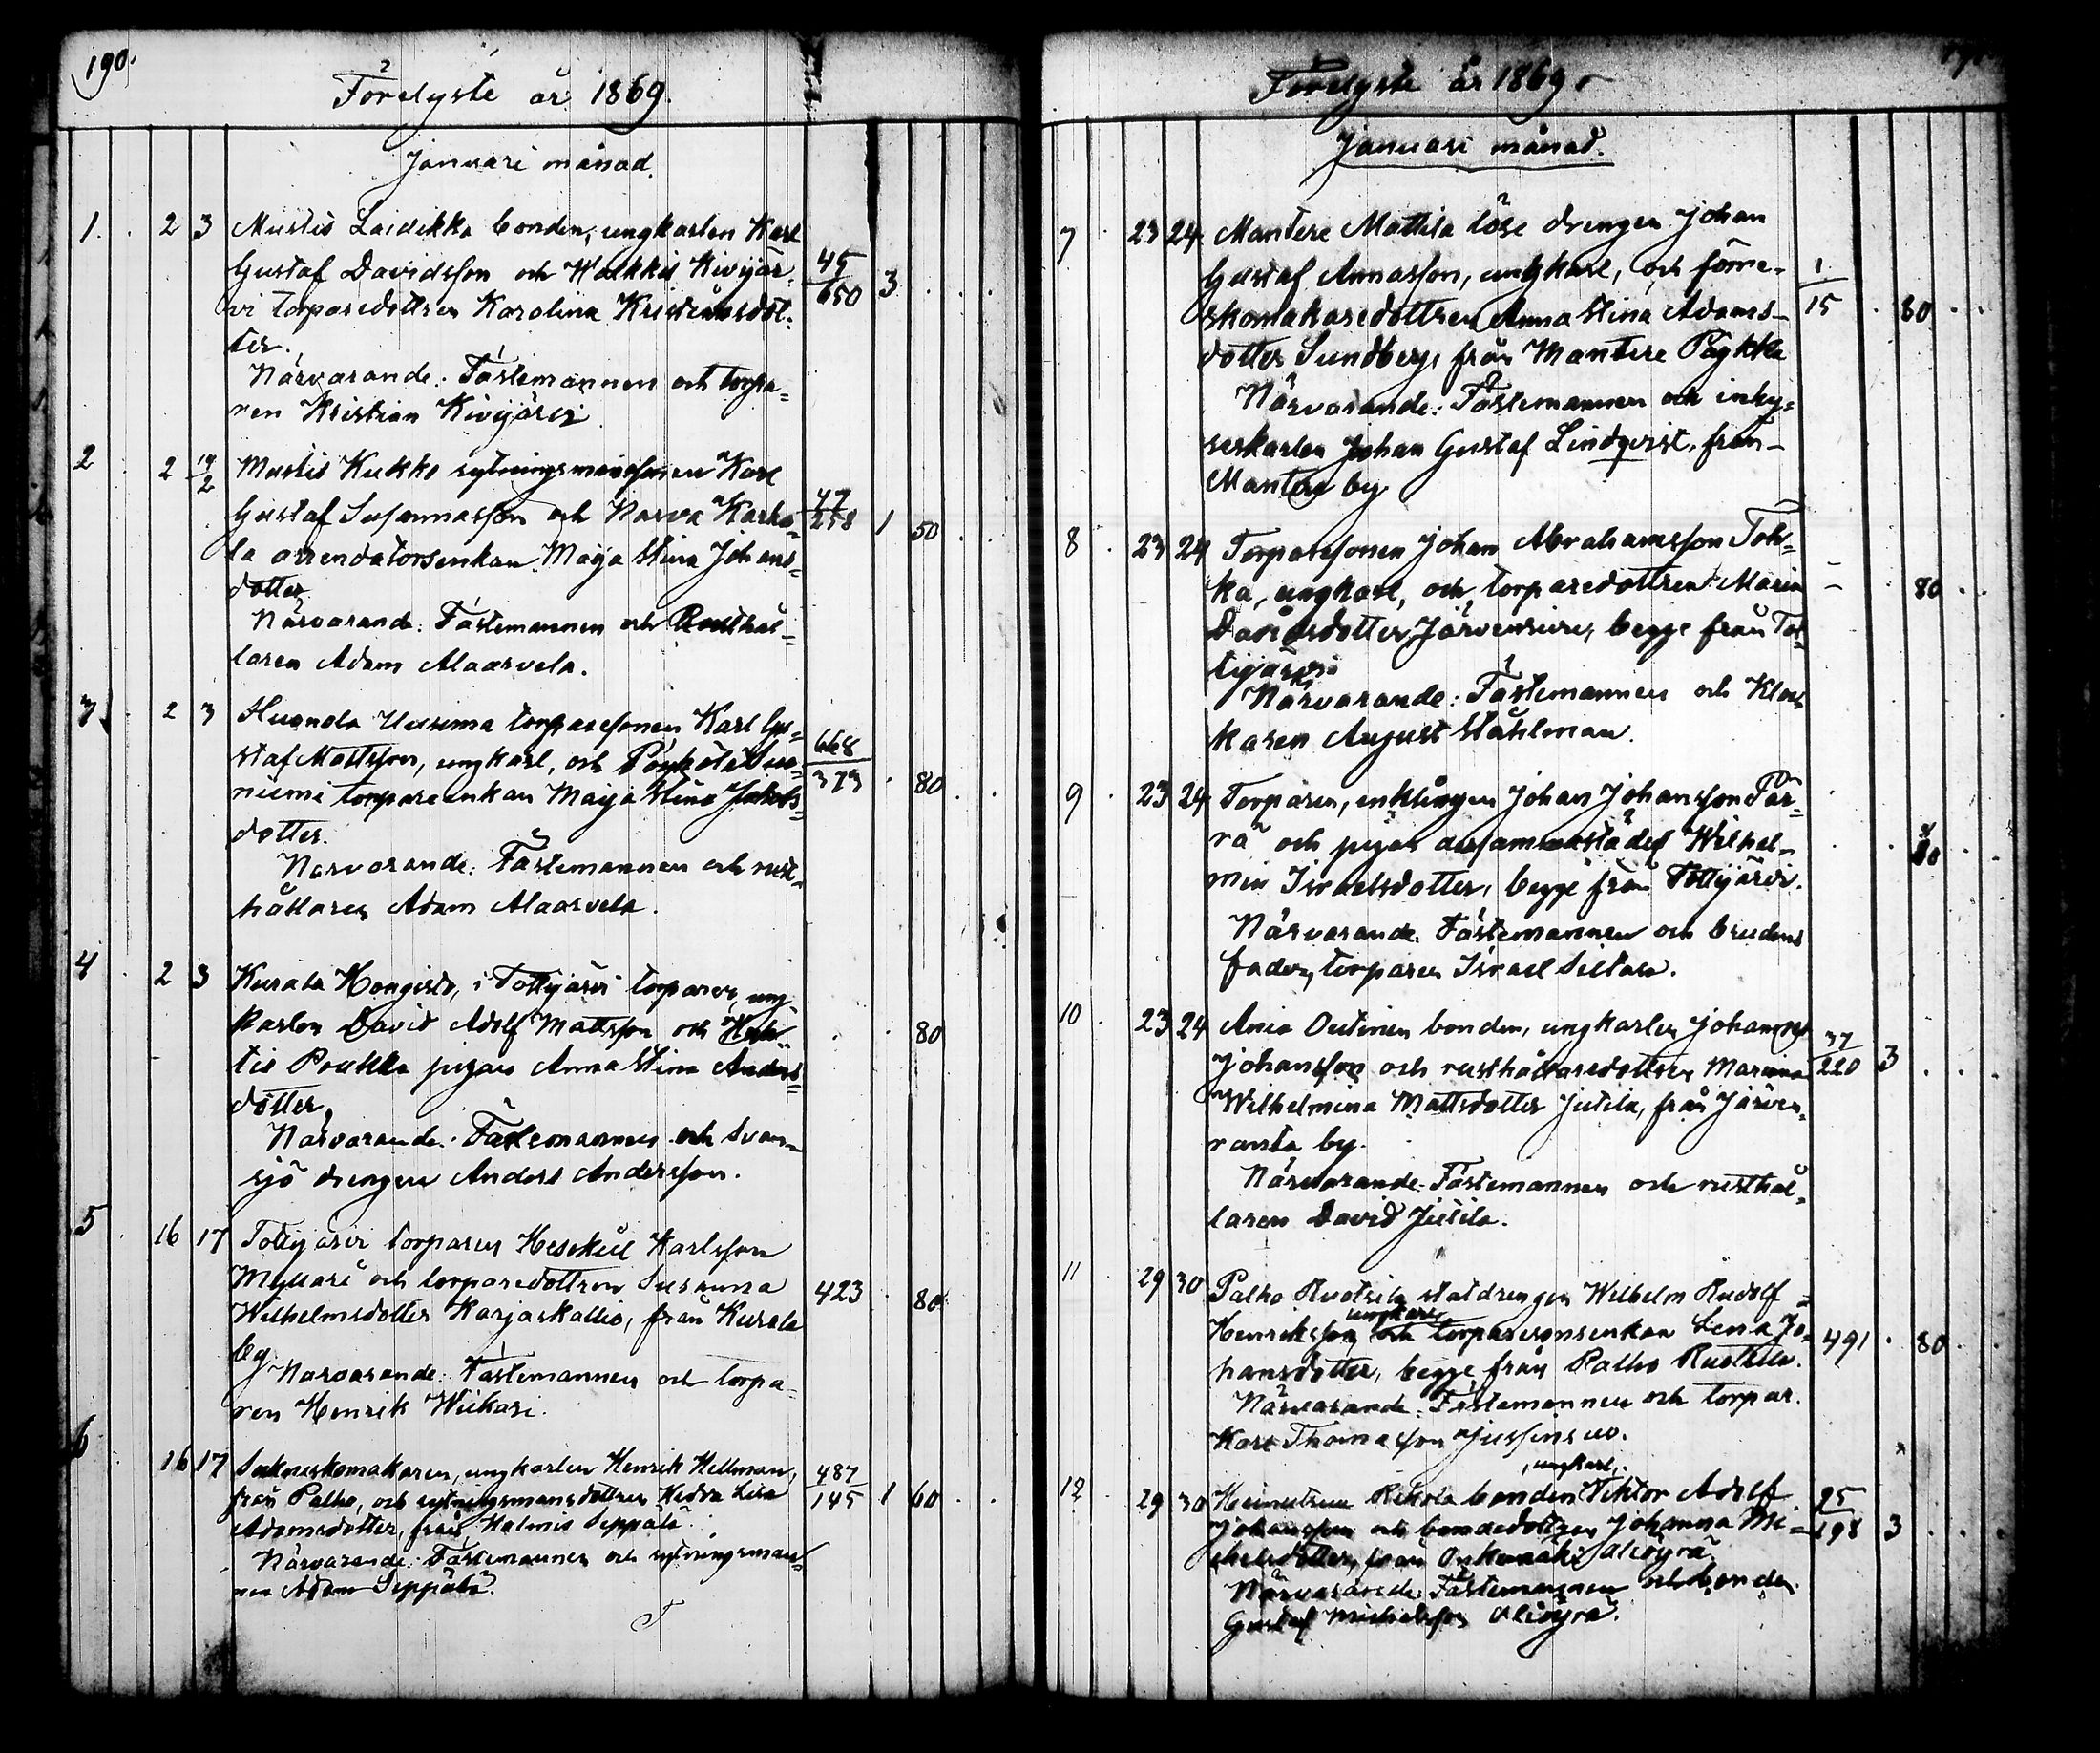 190.
Förelyste år 1869.
Januari månad.
1. 2 3 Mustis Laidikka bonden, ungkarlen Karl
Gustaf Davidsson och Walkkis Kivijär- 45/650 3
vi torparedottren Karolina Kristiansdot-
ter.
Närvarande: Fästemannen och torpa-
ren Kristian Kivijärvi
2 2 14/2 Mustis Kukko sytningsmanssonen Karl
Gustaf Susannasson och Narva Karha- 47/258 1 50
la arrendatorsenkan Maja Stina Johans-
dotter.
Närvarande: Fästemannen och Rusthål-
laren Adam Alaarvela.
3 2 3 Huanola Uusima torparesonen Karl Gu-
staf Mattsson, ungkarl, och Pöyhölä Suo- 668/373 80
niemi torpareenkan Maja Stina Jakobs-
dotter.
Närvarande: Fästemannen och rust-
hållaren Adam Alaarvela.
4 2 3 Kurala Hongisto, i Tottijärvi torparen, ung-
karlen David Adolf Mattsson och 80
tis Poukka pigan Anna Stina Anders-
dotter.
Närvarande: Fästemannen och Svan-
sjö drengen Anders Andersson.
5 16 17 Tottijärvi torparen Hesekiel Karlsson
Myllari och torparedottren Susanna 423 80
Wilhelmsdotter Karjaskallio, från Kurala
by.
Närvarande: Fästemannen och torpa-
ren Henrik Wiikari.
6 16 17 Sockneskomakaren, ungkarlen Henrik Hellman, 487/145
från Palho, och sytningsmansdottren Hedda Lisa 1 60
Adamsdotter, från Halmis Seppälä.
Närvarande: Fästemannen och sytningsman-
nen Adam Seppälä.
T
191
Förelyste år 1869.
Januari månad.
7 23 24 Mantere Mattila löse drengen Johan
Gustaf Annasson, ungkarl, och förre- 1/15
skomakaredottren Anna Stina Adams- 80
dotter Sundberg, från Mantere Päykki
Närvarande: Fästemannen och inhy-
seskarlen Johan Gustaf Lindqvist, från
Mantere by
8 23 24 Torparesonen Johan Abrahamsson Toh-
ka, ungkarl, och torparedottren Maria 80
Davidsdotter Järvensivu, begge från Tot-
tijärvi
Närvarande: Fästemannen och Kloc-
karen August Ståhlman.
9 23 24 Torparen, enklingen Johan Johansson Pär-
rä och pigan dersammastädes Wilhel- 80
mina Israelsdotter, begge från Tottijärvi.
Närvarande: Fästemannen och brudens
fader, torparen Israel Siltari.
10 23 24 Ania Outinen bonden, ungkarlen Johannes
Johansson och rusthållaredottren Marina 37/220 3
Wilhelmina Mattsdotter Jutila, från Järven-
ranta by.
Närvarande: Fästemannen och rusthål-
laren David Jutila.
11 29 30 Palho Ruotsila statdrengen Wilhelm Rudolf
Henriksson, ungkarl, och torparesonsenkan Lena Jo- 491 80
hansdotter, begge från Palho Ruotsila.
Närvarande: Fästemannen och torpar.
Karl Thomasson
12 29 30 bonden, ungkarl, Viktor Adolf 25/198
Johansson och bondedottren Johanna Mi- 3
chelsdotter, från Onkemäki Alisyrä.
Närvarande: Fästemannen och bonden
Gustaf Michelsson Alisyrä.